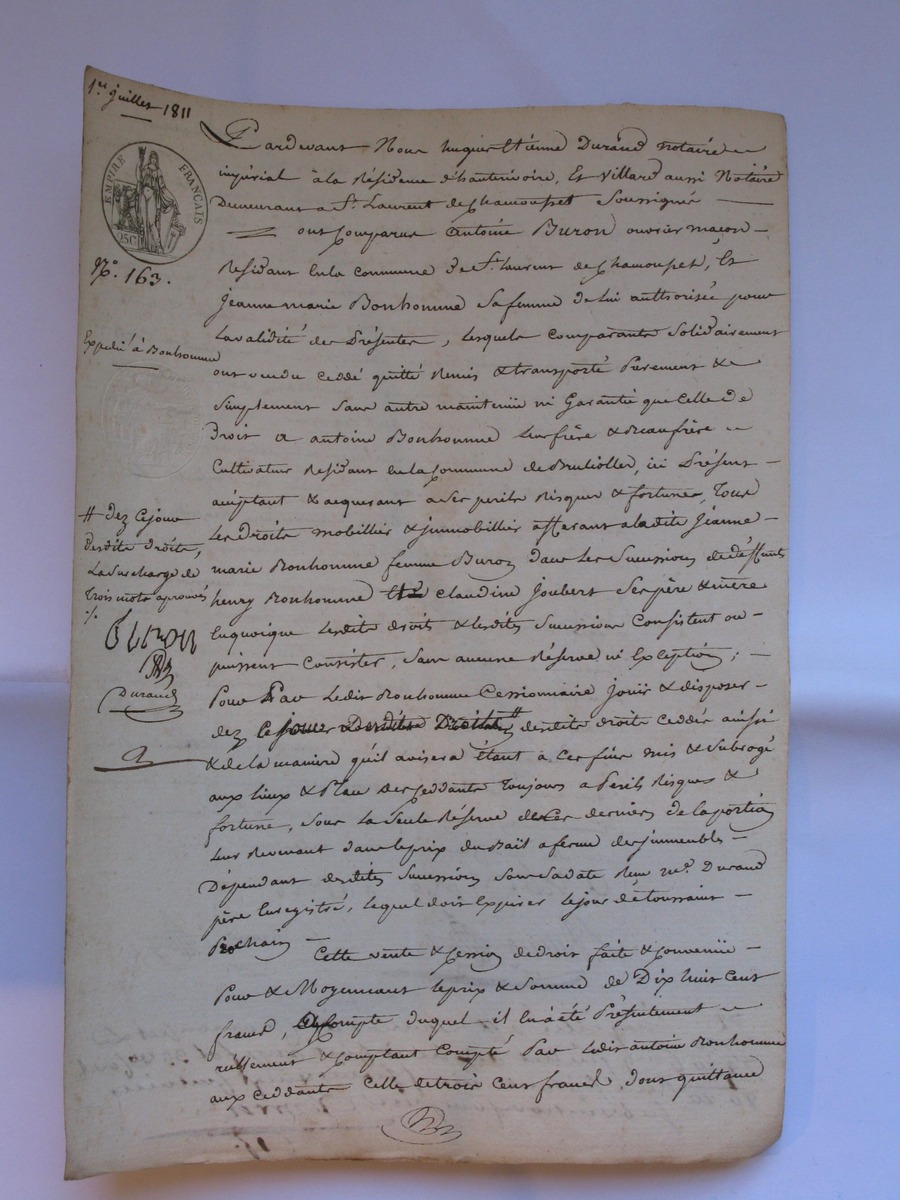 1er juillet 1811
EMPIRE FRANÇAIS
25C
N°. 163.
Expedié à Bonhomme
# dez Cejour
desdits droits,
La Surcharge de
trois mots aprouvés
Buron
Durand
Pardevant Nous hugues Etienne Durand notaire
impérial à la Résidence d'hauterivoire, Et Villard aussi Notaire
Demeurant a St. Laurent de Chamousset Soussignés
ont Comparus Antoine Buron ouvrier maçon
Residant En la Commune de St. Laurent de Chamousset, Et
Jeanne marie Bonhomme Sa femme de lui authorisée pour
La validité des Présentes, Lesquels Comparants Solidairement
ont vendu Ceddé quitté Remis & transporté Purement &
Simplement Sans autre maintenüe ni Garantie que Celle de
Droit a antoine Bonhomme Leur frère & Beaufrère
Cultivateur Residant En la Commune de Brullioles, ici Présent
aceptant & acquerant a Ses perils Risques & fortunes, Tous
Les Droits mobilliers & jmmobilliers afferant a ladite Jeanne
marie Bonhomme femme Buron dans Les Successions de deffunts
henry Bonhomme & claudine Joubert Ses père & mère
En quoique Lesdits droits & Lesdites Successions Consistent ou
puissent Consister, Sans aucune Réserve ni Exception;
Pour Par Ledit Bonhomme Cessionnaire Jouir & disposer
dez Ce jour Desdits Droits # desdits droits Ceddés ainsi
& de la maniere qu'il avisera Étant à Ces fins mis & Subrogé
aux lieux & Place des Ceddants Toujours a Perils Risques &
fortune, Sous La Seule Réserve de Ces derniers de la portion
Leur Revenant dans le prix du Bail a ferme des jmmeubles
Dépendant desdites Successions Sous Sa date Reçu Me. Durand
père Enregistré, Lequel doit Expirer le jour de toussaint
Prochain
Cette vente & Cession de droit faite & Convenüe
Pour & Moyennant le prix & Somme de Dix huit Cent
francs, a Compte duquel il En a été Présentement
réellement & Comptant Compté Par Ledit antoine Bonhomme
aux Ceddants Celle de trois Cent francs, dont quittance